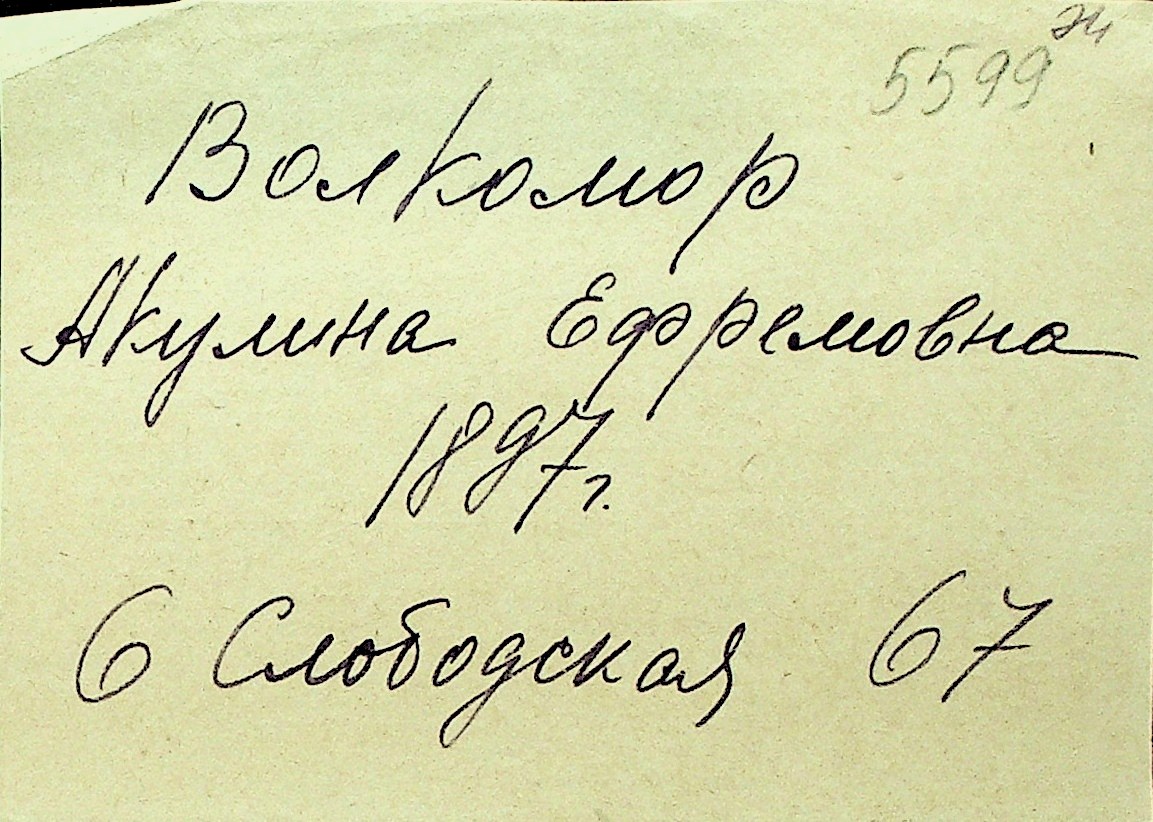 5599
Волкомор
Акулина Ефремовна
1897г.
6 Слободская 67